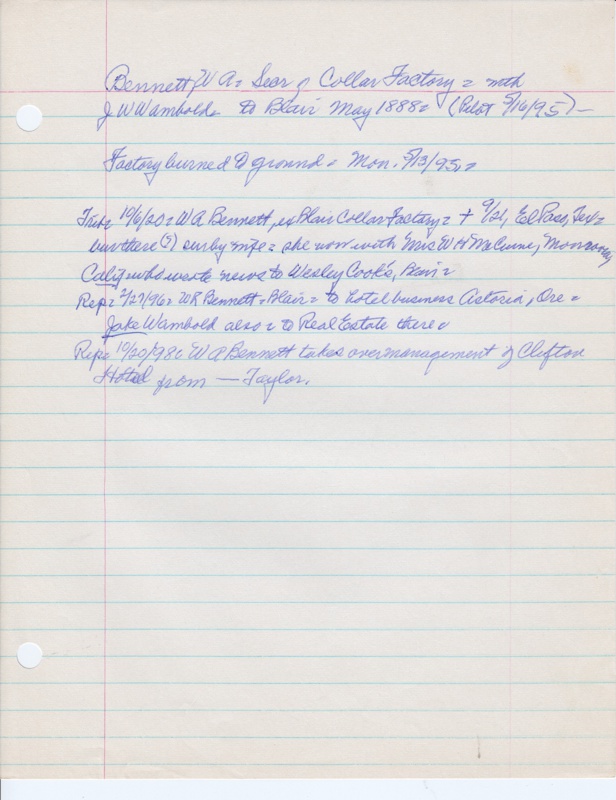 Bennett, W A = Secr of Collar Factory = with
J W Wambold = to Blair May 1888 = (Pilot 5/16/95) —
Factory burned to ground = Mon. 5/13/95 =
Trib = 10/6/20 = W A Bennett, ex Blair Collar Factory = + 9/21, El Paso, Tex =
bur there (?) sur by wife = she now with Mrs W H McCune, Monrovia,
Calif who wrote news to Wesley Cook's, Blair =
Rep = 2/27/96 = W R Bennett = Blair = to hotel business Astoria, Ore =
Jake Wambold also = to Real Estate there =
Rep = 10/20/98 = W A Bennett takes over management of Clifton
Hotel from — Taylor.